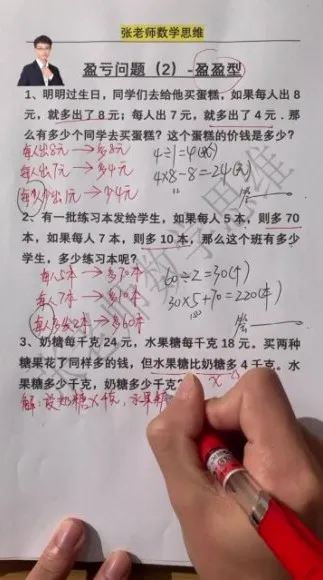 张老师数学思维
盈亏问题（2）-盈盈型
1、明明过生日，同学们去给他买蛋糕，如果每人出8
元，就多出了8元；每人出7元，就多出了4元．那
么有多少个同学去买蛋糕？这个蛋糕的价钱是多少？
每人出8元→多8元
4÷1=4(人)
每人出7元→多4元
4×8-8=24(元)
每人少出1元→少4元
答:
2、有一批练习本发给学生，如果每人5本，则多70
本，如果每人7本，则多10本，那么这个班有多少
学生，多少练习本呢？
每人5本→多70本
60÷2=30(个)
每人7本→多10本
30×5+70=220(本)
每人多发2本→多60本
答:
3、奶糖每千克24元，水果糖每千克18元。买两种
糖果花了同样多的钱，但水果糖比奶糖多4千克。水
果糖多少千克，奶糖多少千克？
解:设奶糖x千克，水果糖